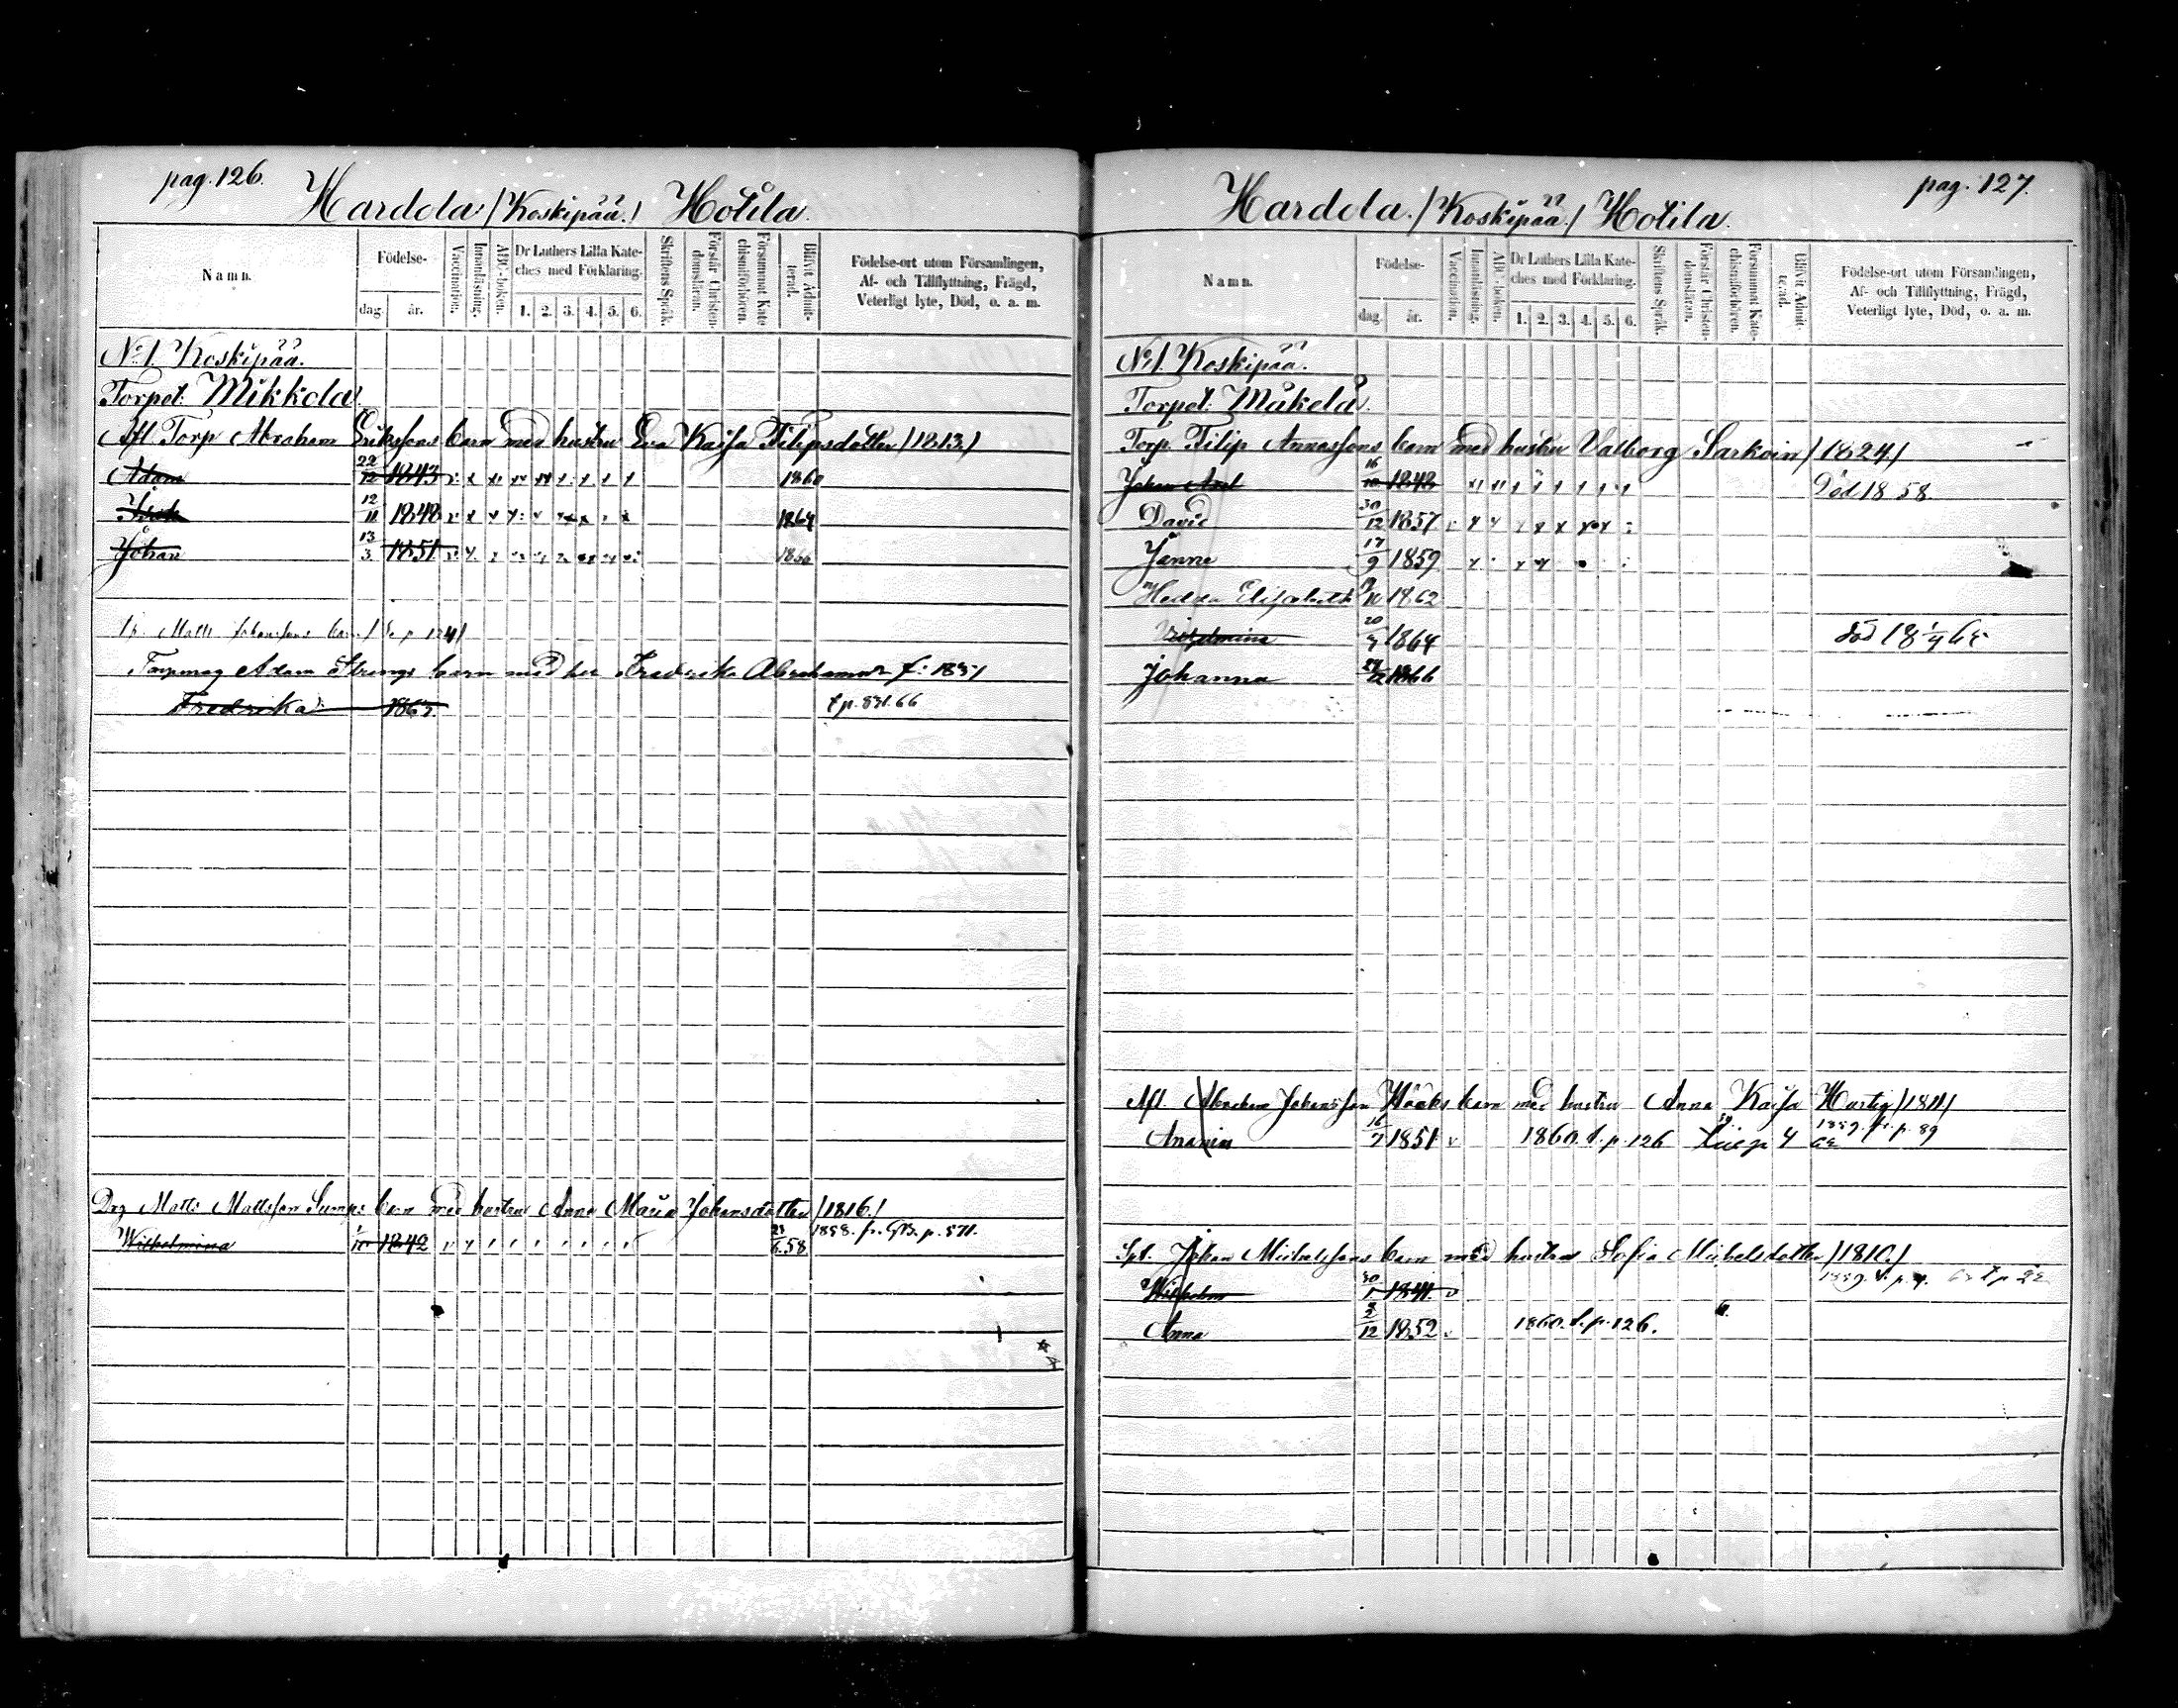 pag. 126.
Hardola /Koskipää./ Hotila.
Namn.
Födelse-
dag.
år.
Vaccination.
Innanläsning.
ABC-boken.
Dr Luthers Lilla Kate-
ches med Förklaring.
1. 2. 3. 4. 5. 6.
Skriftens Språk.
Förstår Christen-
domsläran.
Försummat Kate
chismiförhören.
Blifvit Admit-
terad.
Födelse-ort utom Församlingen,
Af- och Tillflyttning, Frägd,
Veterligt lyte, Död, o. a. m.
No 1. Koskipää.
Torpet: Mikkola.
Afl. Torp Abraham Erikssons barn med hustru Eva Kaisa Filipsdotter /1813./
Adam 22/12 1843 1860
12/11 1848 1864
Johan 13/3 1851 1866
Matts Johanssons barn
Adam Strengs barn med Fredrika
Fredrika 1865. t p. 831. 66
Drg Matts Mattsson Sumps barn med hustru Anna Maria Johansdotter /1816./
Wilhelmina 1842 58 1858. fr. p. 571.
pag. 127.
Hardola. /Koskipää./ Hotila.
Namn.
Födelse-
dag.
år.
Vaccination.
Innanläsning.
ABC-boken.
Dr Luthers Lilla Kate-
ches med Förklaring.
1. 2. 3. 4. 5. 6.
Skriftens Språk.
Förstår Christen-
domsläran.
Försummat Kate-
chismiförhören.
Blifvit Admit-
terad.
Födelse-ort utom Församlingen,
Af- och Tillflyttning, Frägd,
Veterligt lyte, Död, o. a. m.
No 1. Koskipää.
Torpet: Mäkelä.
Torp. Filip Annassons barn med hustru Valborg Sarkoin /1824/
Johan Axel 16/10 1848 Död 1858.
David 30/12 1857
Janne 17/9 1859
Hedda Elisabeth 1862
Vilhelmina 20/7 1864
Johanna 1866
Afl. Abraham Johansson Hööks barn med hustru Anna Kaisa Hartig /1811/
Anania 16/7 1851 1860. t. p. 126 1859. fr. p. 89
Spt. Johan Michelssons barn med hustru Sofia Michelsdotter /1810./
Wilhelm 30/1 1841.
Anna 2/12 1852 1860. t. p. 126.